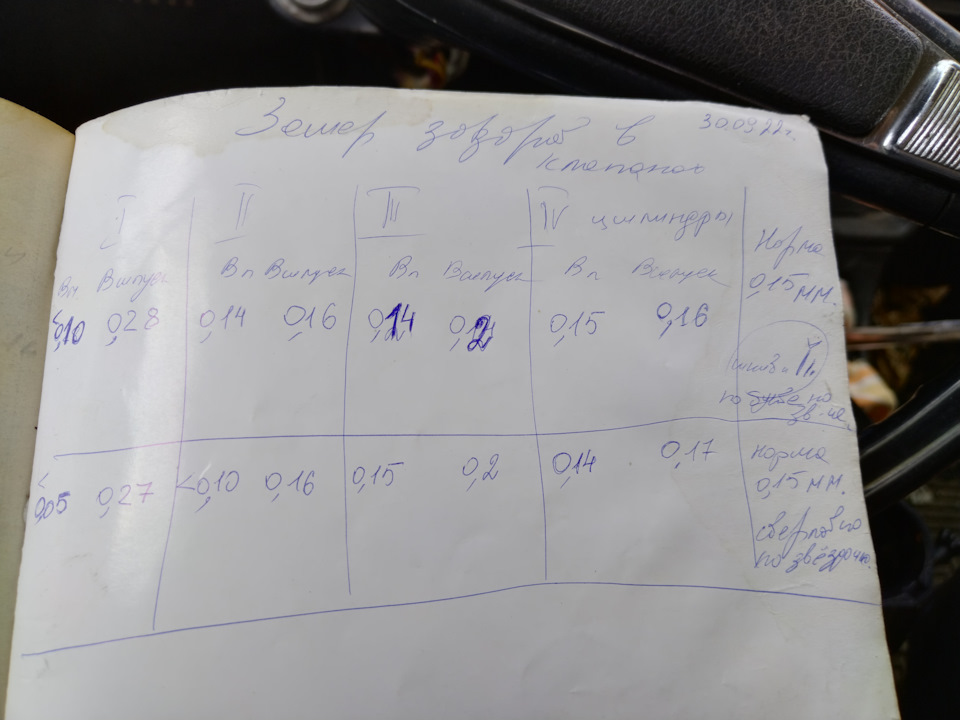 Замер зазоров в 30.09.22г.
клапанах
I II III IV цилиндры
Норма
0,15 мм.
Вп. Выпуск Вп Выпуск Вп Выпуск Вп Выпуск
<0,10 0,28 0,14 0,16 0,14 0,2 0,15 0,16
по по
зв-че.
<0,05 0,27 <0,10 0,16 0,15 0,2 0,14 0,17
норма
0,15 мм.
по звёздочке.